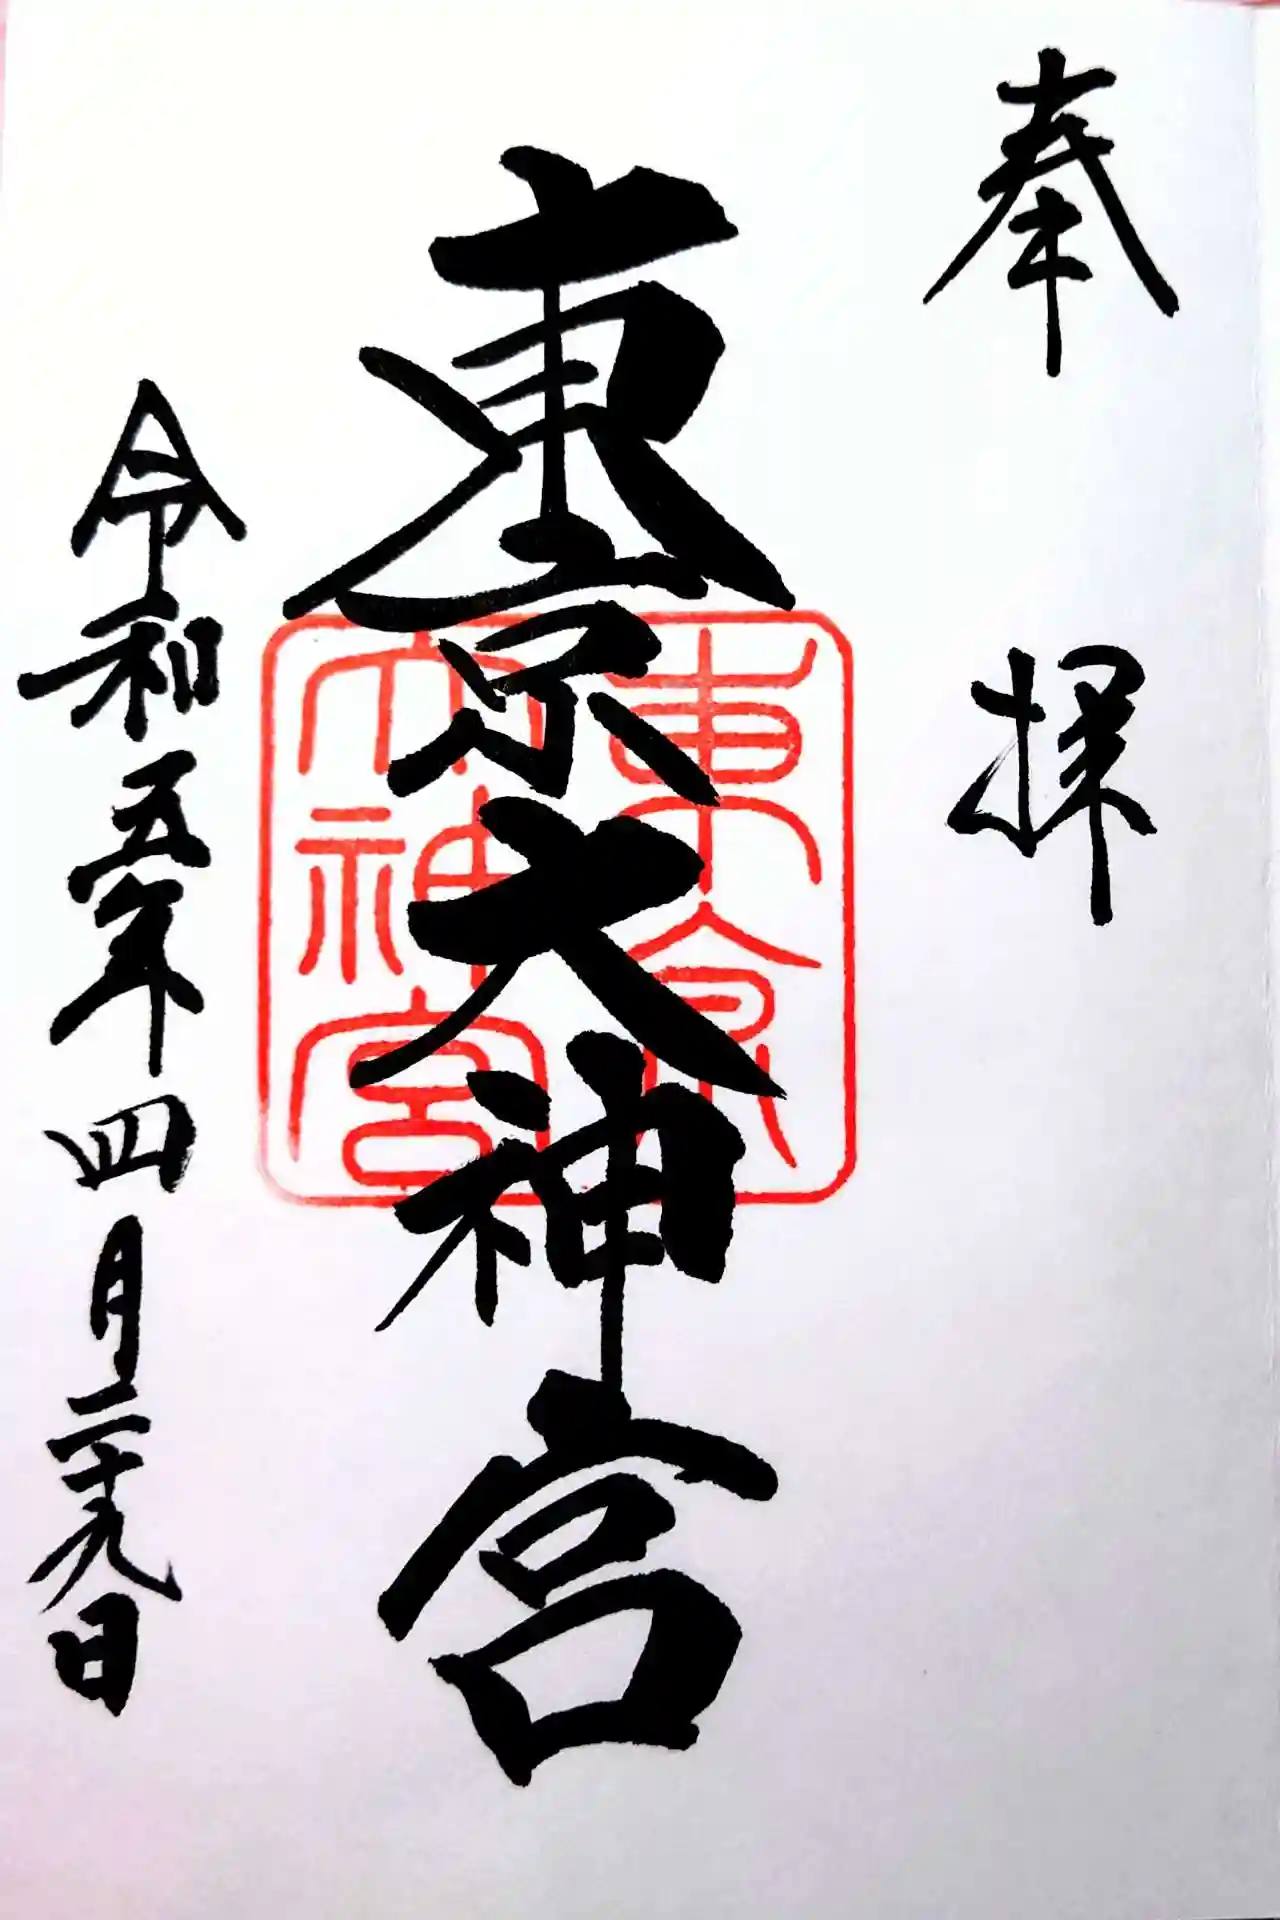 奉拝
東京大神宮
東京大神宮
令和五年四月二十九日